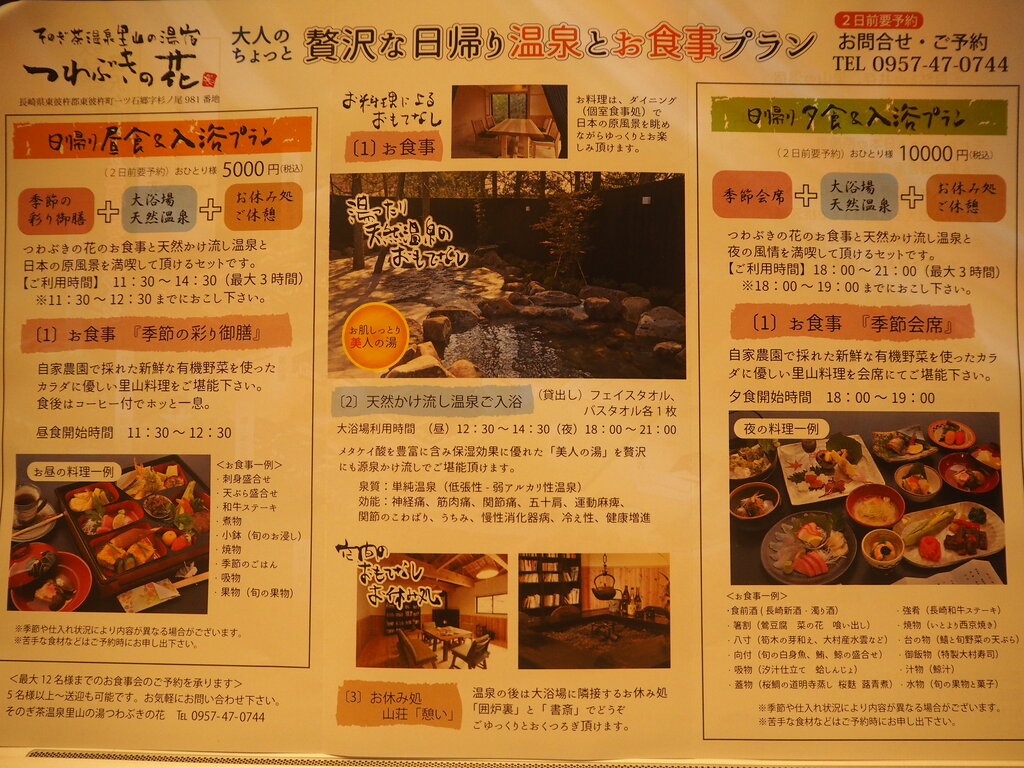 そのぎ茶温泉里山の湯宿
つわぶきの花
長崎県東彼杵郡東彼杵町一ツ石郷字杉ノ尾981番地
大人の
ちょっと
贅沢な日帰り温泉とお食事プラン
2日前要予約
お問合せ・ご予約
TEL 0957-47-0744
日帰り昼食&入浴プラン
(2日前要予約) おひとり様 5000円(税込)
季節の
彩り御膳
+
大浴場
天然温泉
+
お休み処
ご休憩
つわぶきの花のお食事と天然かけ流し温泉と
日本の原風景を満喫して頂けるセットです。
【ご利用時間】 11:30~14:30(最大3時間)
※11:30~12:30までにおこし下さい。
〔1〕お食事 『季節の彩り御膳』
自家農園で採れた新鮮な有機野菜を使った
カラダに優しい里山料理をご堪能下さい。
食後はコーヒー付でホッと一息。
昼食開始時間 11:30~12:30
お昼の料理一例
<お食事一例>
・刺身盛合せ
・天ぷら盛合せ
・和牛ステーキ
・煮物
・小鉢(旬のお浸し)
・焼物
・季節のごはん
・吸物
・果物(旬の果物)
※季節や仕入れ状況により内容が異なる場合がございます。
※苦手な食材などはご予約時にお申し出下さい。
<最大12名様までのお食事会のご予約を承ります>
5名様以上~送迎も可能です。お気軽にお問い合わせ下さい。
そのぎ茶温泉里山の湯つわぶきの花 TEL 0957-47-0744
お料理による
おもてなし
〔1〕お食事
お料理は、ダイニング
(個室食事処)で
日本の原風景を眺め
ながらゆっくりとお楽
しみ頂けます。
湯ったり
天然温泉の
おもてなし
お肌しっとり
美人の湯
〔2〕天然かけ流し温泉ご入浴
(貸出し)フェイスタオル、
バスタオル各1枚
大浴場利用時間 (昼)12:30~14:30(夜)18:00~21:00
メタケイ酸を豊富に含み保湿効果に優れた「美人の湯」を贅沢
にも源泉かけ流しでご堪能頂けます。
泉質:単純温泉(低張性-弱アルカリ性温泉)
効能:神経痛、筋肉痛、関節痛、五十肩、運動麻痺、
関節のこわばり、うちみ、慢性消化器病、冷え性、健康増進
空間の
おもてなし
お休み処
〔3〕お休み処
山荘「憩い」
温泉の後は大浴場に隣接するお休み処
「囲炉裏」と「書斎」でどうぞ
ごゆっくりとおくつろぎ頂けます。
日帰り夕食&入浴プラン
(2日前要予約) おひとり様 10000円(税込)
季節会席
+
大浴場
天然温泉
+
お休み処
ご休憩
つわぶきの花のお食事と天然かけ流し温泉と
夜の風情を満喫して頂けるセットです。
【ご利用時間】18:00~21:00(最大3時間)
※18:00~19:00までにおこし下さい。
〔1〕お食事 『季節会席』
自家農園で採れた新鮮な有機野菜を使ったカラ
ダに優しい里山料理を会席にてご堪能下さい。
夕食開始時間 18:00~19:00
夜の料理一例
<お食事一例>
・食前酒(長崎新酒・濁り酒)
・箸割(鶯豆腐 菜の花 喰い出し)
・八寸(筍木の芽和え、大村産水雲など)
・向付(旬の白身魚、鮪、鯨の盛合せ)
・吸物(汐汁仕立て 蛤しんじょ)
・蓋物(桜鯛の道明寺蒸し 桜麩 蕗青煮)
・強肴(長崎和牛ステーキ)
・焼物(いとより西京焼き)
・台の物(鱚と旬野菜の天ぷら)
・御飯物(特製大村寿司)
・汁物(鯨汁)
・水物(旬の果物と菓子)
※季節や仕入れ状況により内容が異なる場合がございます。
※苦手な食材などはご予約時にお申し出下さい。